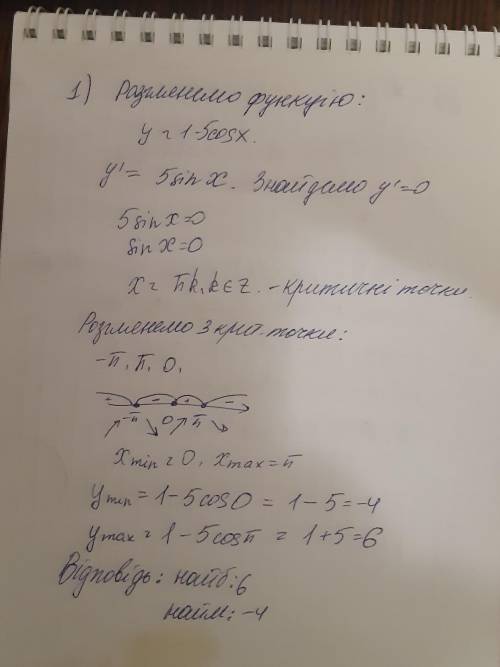 1) Розглянемо функцію:
y = 1-5cosx.
y' = 5sin x. Знайдемо y'=0
5sin x=0
sin x=0
x = πk, k∈z. - критичні точки.
Розглянемо 3 крит. точки:
-π, π, 0,
+ - + -
-π 0 π
xmin = 0, xmax = π
ymin = 1-5cos0 = 1-5=-4
ymax = 1-5cosπ = 1+5=6
Відповідь: найб: 6
найм: -4